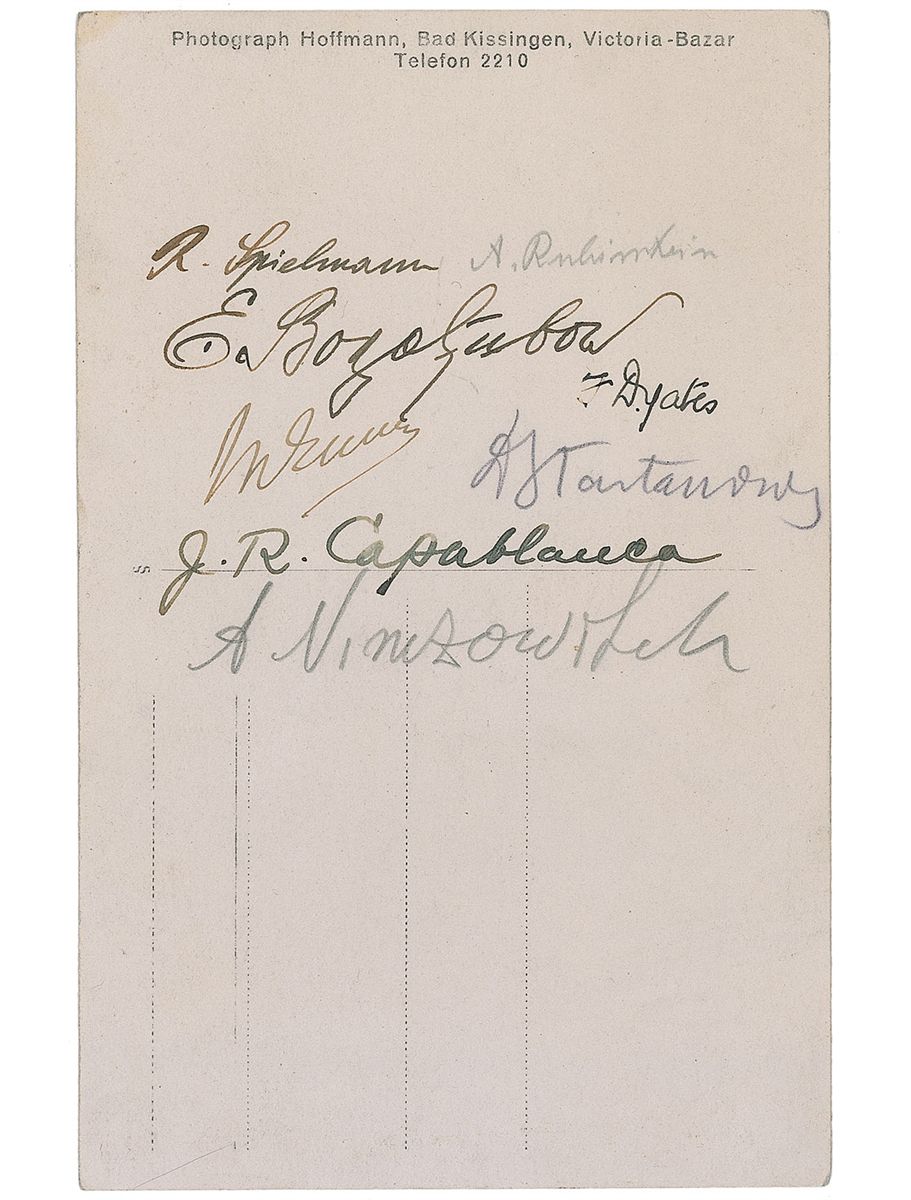 Photograph Hoffmann, Bad Kissingen, Victoria-Bazar
Telefon 2210
R. Spielmann A. Rubinstein
E. Bogoljubow
F D. Yates
M Euwe
Dr Tartakower
J. R. Capablanca
A Nimzowitsch